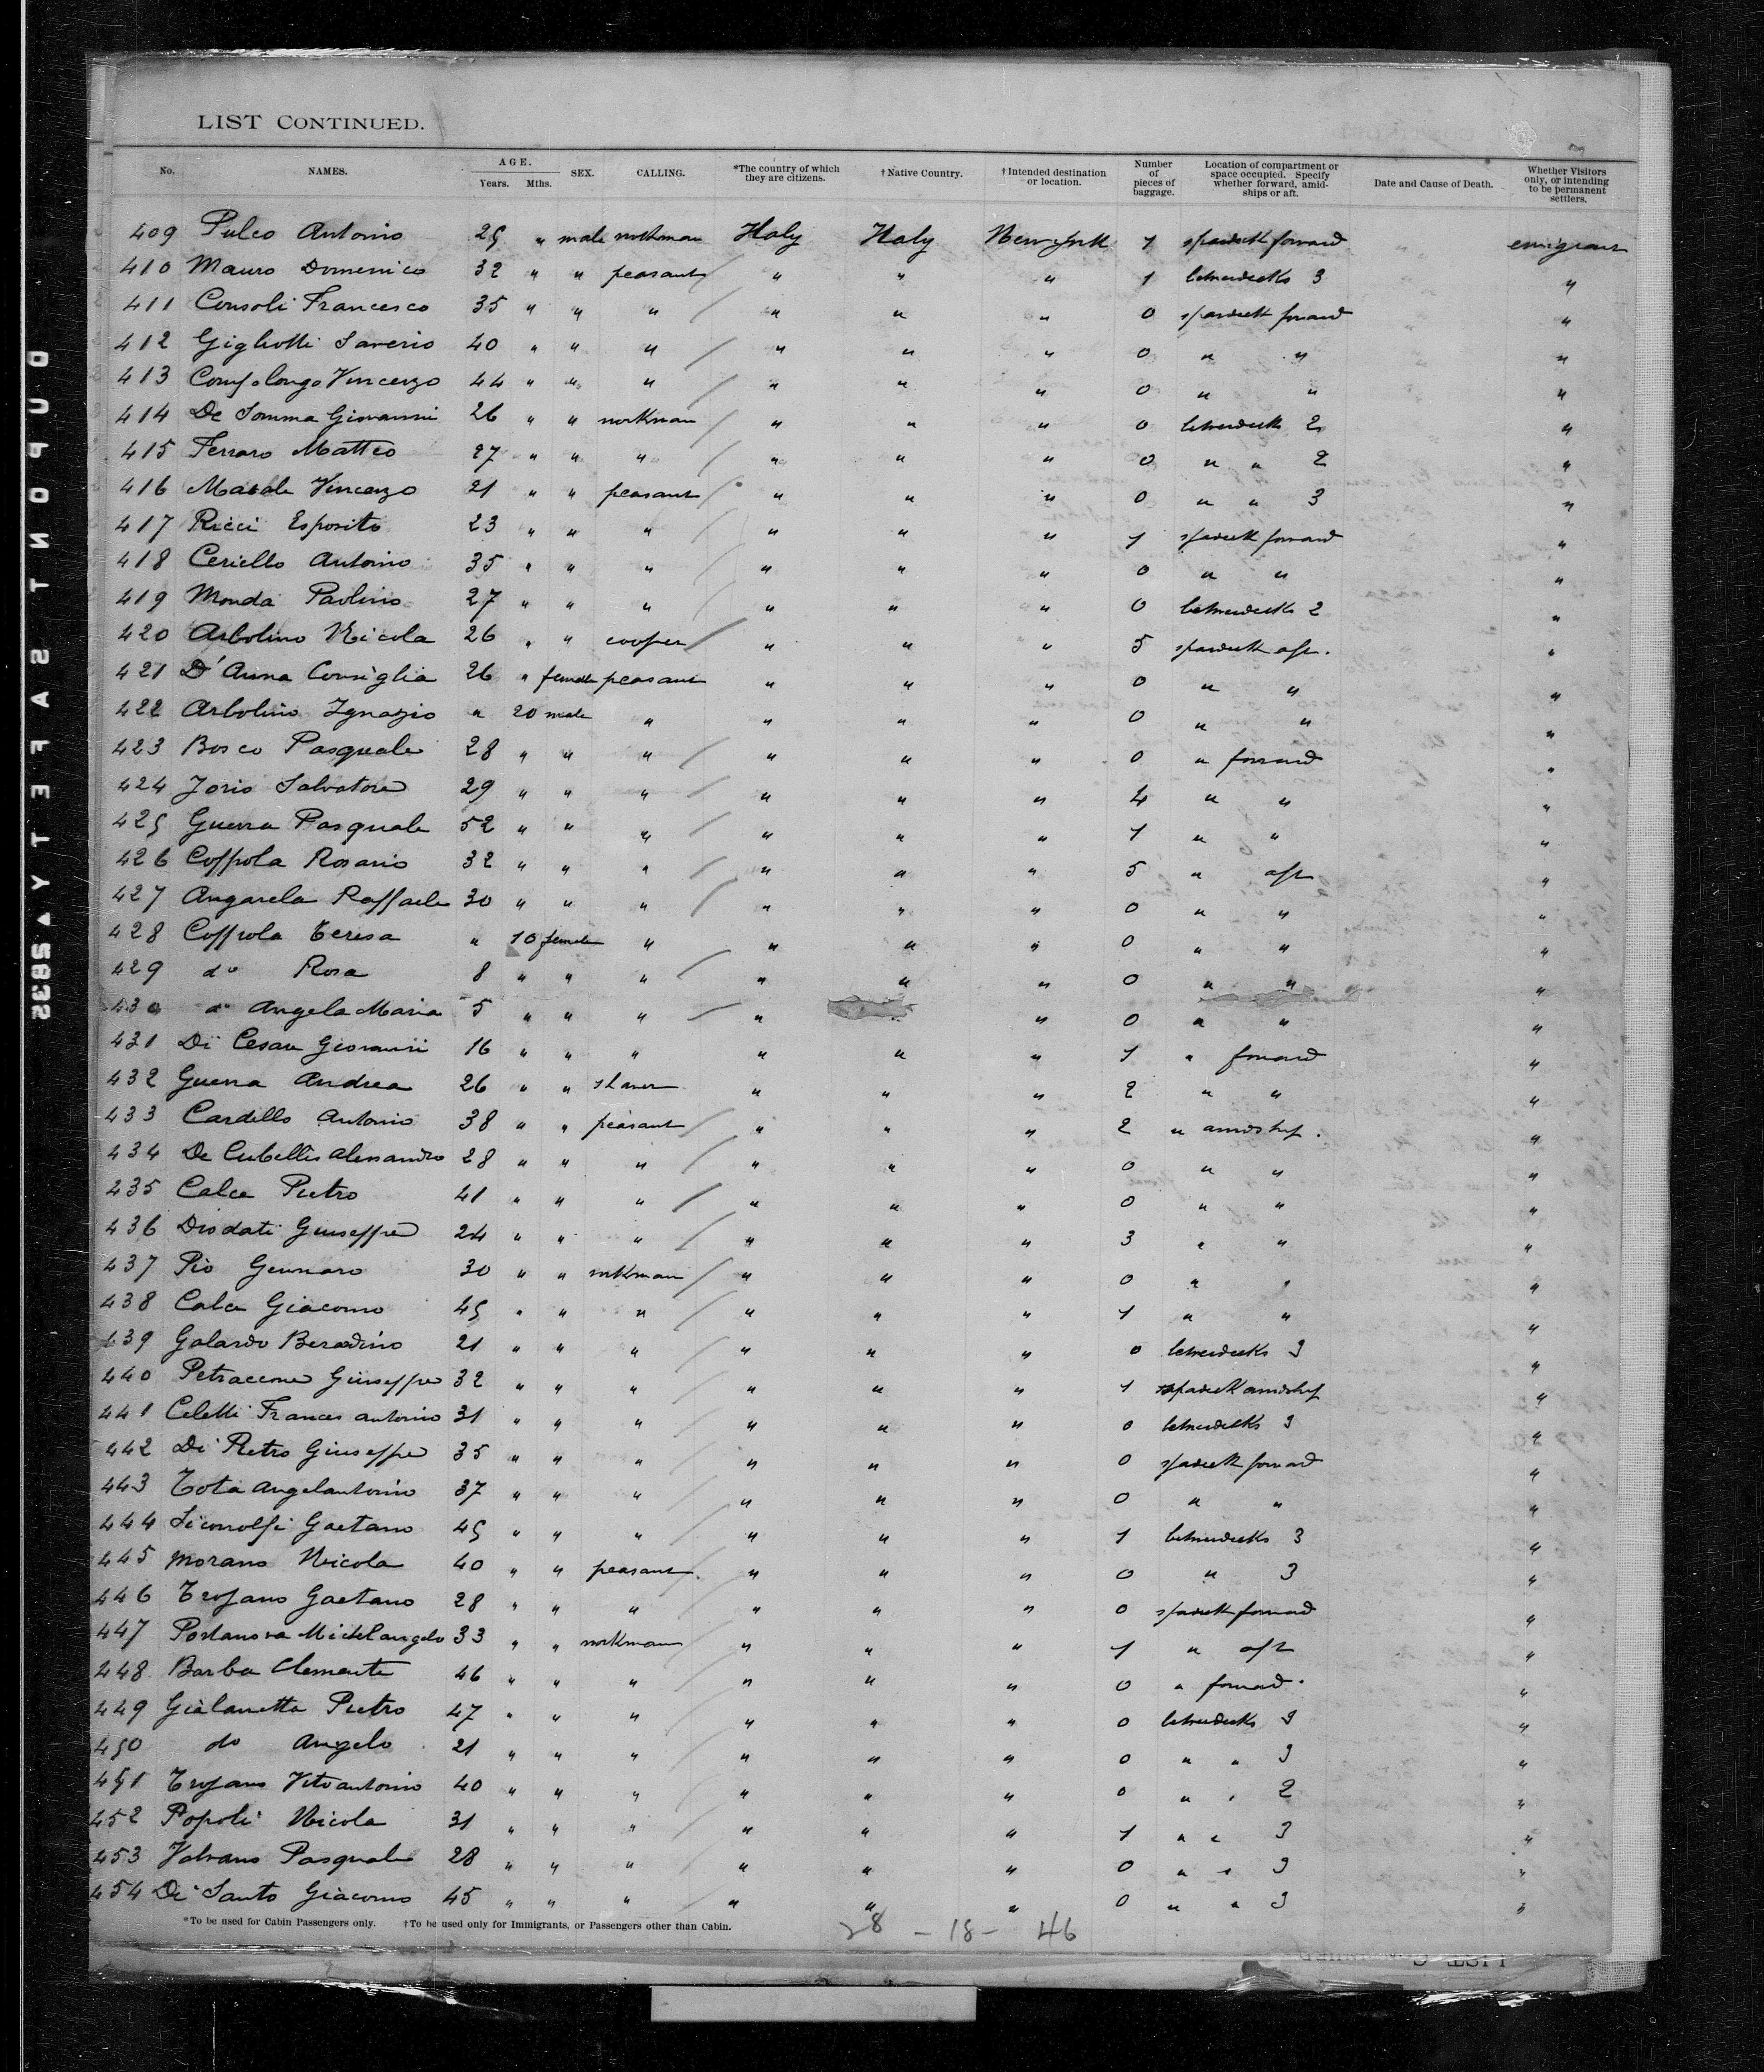 LIST CONTINUED.
No. NAMES. AGE. Years. Mths. SEX. CALLING. *The country of which they are citizens. †Native Country. †Intended destination or location. Number of pieces of baggage. Location of compartment or space occupied. Specify whether forward, amidships or aft. Date and Cause of Death. Whether Visitors only, or intending to be permanent settlers.
409 Pulco Antonio 25 " male workman Italy Italy New-York 1 spardeck forward emigrant
410 Mauro Domenico 32 " " peasant " " " 1 betweendecks 3 "
411 Consoli Francesco 35 " " " " " " 0 spardeck forward "
412 Gigliotti Saverio 40 " " " " " " 0 " " "
413 Compolongo Vincenzo 44 " " " " " " 0 " " "
414 De Somma Giovanni 26 " " workman " " " 0 betweendecks 2 "
415 Ferraro Matteo 27 " " " " " " 0 " " 2 "
416 Masole Vincenzo 21 " " peasant " " " 0 " " 3 "
417 Ricci Esposito 23 " " " " " " 1 spardeck forward "
418 Ceriello Antonio 35 " " " " " " 0 " " "
419 Monda Paolino 27 " " " " " " 0 betweendecks 2 "
420 Arbolino Nicola 26 " " cooper " " " 5 spardeck aft. "
421 D'Anna Consiglia 26 " female peasant " " " 0 " " "
422 Arbolino Ignazio " 20 male " " " " 0 " " "
423 Bosco Pasquale 28 " " " " " " 0 " forward "
424 Jorio Salvatore 29 " " " " " " 4 " " "
425 Guerra Pasquale 52 " " " " " " 1 " " "
426 Coppola Rosario 32 " " " " " " 5 " aft "
427 Angarela Raffaele 30 " " " " " " 0 " " "
428 Coppola Teresa " 10 female " " " " 0 " " "
429 do Rosa 8 " " " " " " 0 " " "
430 do Angela Maria 5 " " " " " 0 " " "
431 Di Cesare Giovanni 16 " " " " " " 1 " forward "
432 Guerra Andrea 26 " " shaver " " " 2 " " "
433 Cardillo Antonio 38 " " peasant " " " 2 " amidship. "
434 De Cubellis Alessandro 28 " " " " " " 0 " " "
435 Calce Pietro 41 " " " " " " 0 " " "
436 Diodati Giuseppe 24 " " " " " " 3 " " "
437 Pio Gennaro 30 " " workman " " " 0 " " "
438 Calce Giacomo 45 " " " " " " 1 " " "
439 Galardo Berardino 21 " " " " " " 0 betweendecks 3 "
440 Petraccone Giuseppe 32 " " " " " " 1 spardeck amidship "
441 Celetti Francesantonio 31 " " " " " " 0 betweendecks 3 "
442 Di Pietro Giuseppe 35 " " " " " " 0 spardeck forward "
443 Tota Angelantonio 37 " " " " " " 0 " " "
444 Siconolfi Gaetano 45 " " " " " " 1 betweendecks 3 "
445 Morano Nicola 40 " " peasant " " " 0 " 3 "
446 Trofano Gaetano 28 " " " " " " 0 spardeck forward "
447 Postanova Michelangelo 33 " " workman " " " 1 " aft "
448 Barba Clemente 46 " " " " " " 0 " forward. "
449 Gialanetta Pietro 47 " " " " " " 0 betweendecks 3 "
450 do Angelo 21 " " " " " " 0 " " 3 "
451 Trofano Vitoantonio 40 " " " " " " 0 " " 2 "
452 Popoli Nicola 31 " " " " " " 1 " " 3 "
453 Volrano Pasquale 28 " " " " " " 0 " " 3 "
454 Di Santo Giacomo 45 " " " " " " 0 " " 3 "
*To be used for Cabin Passengers only. †To be used only for Immigrants, or Passengers other than Cabin.
28 - 18 - 46
DUPONT SAFETY